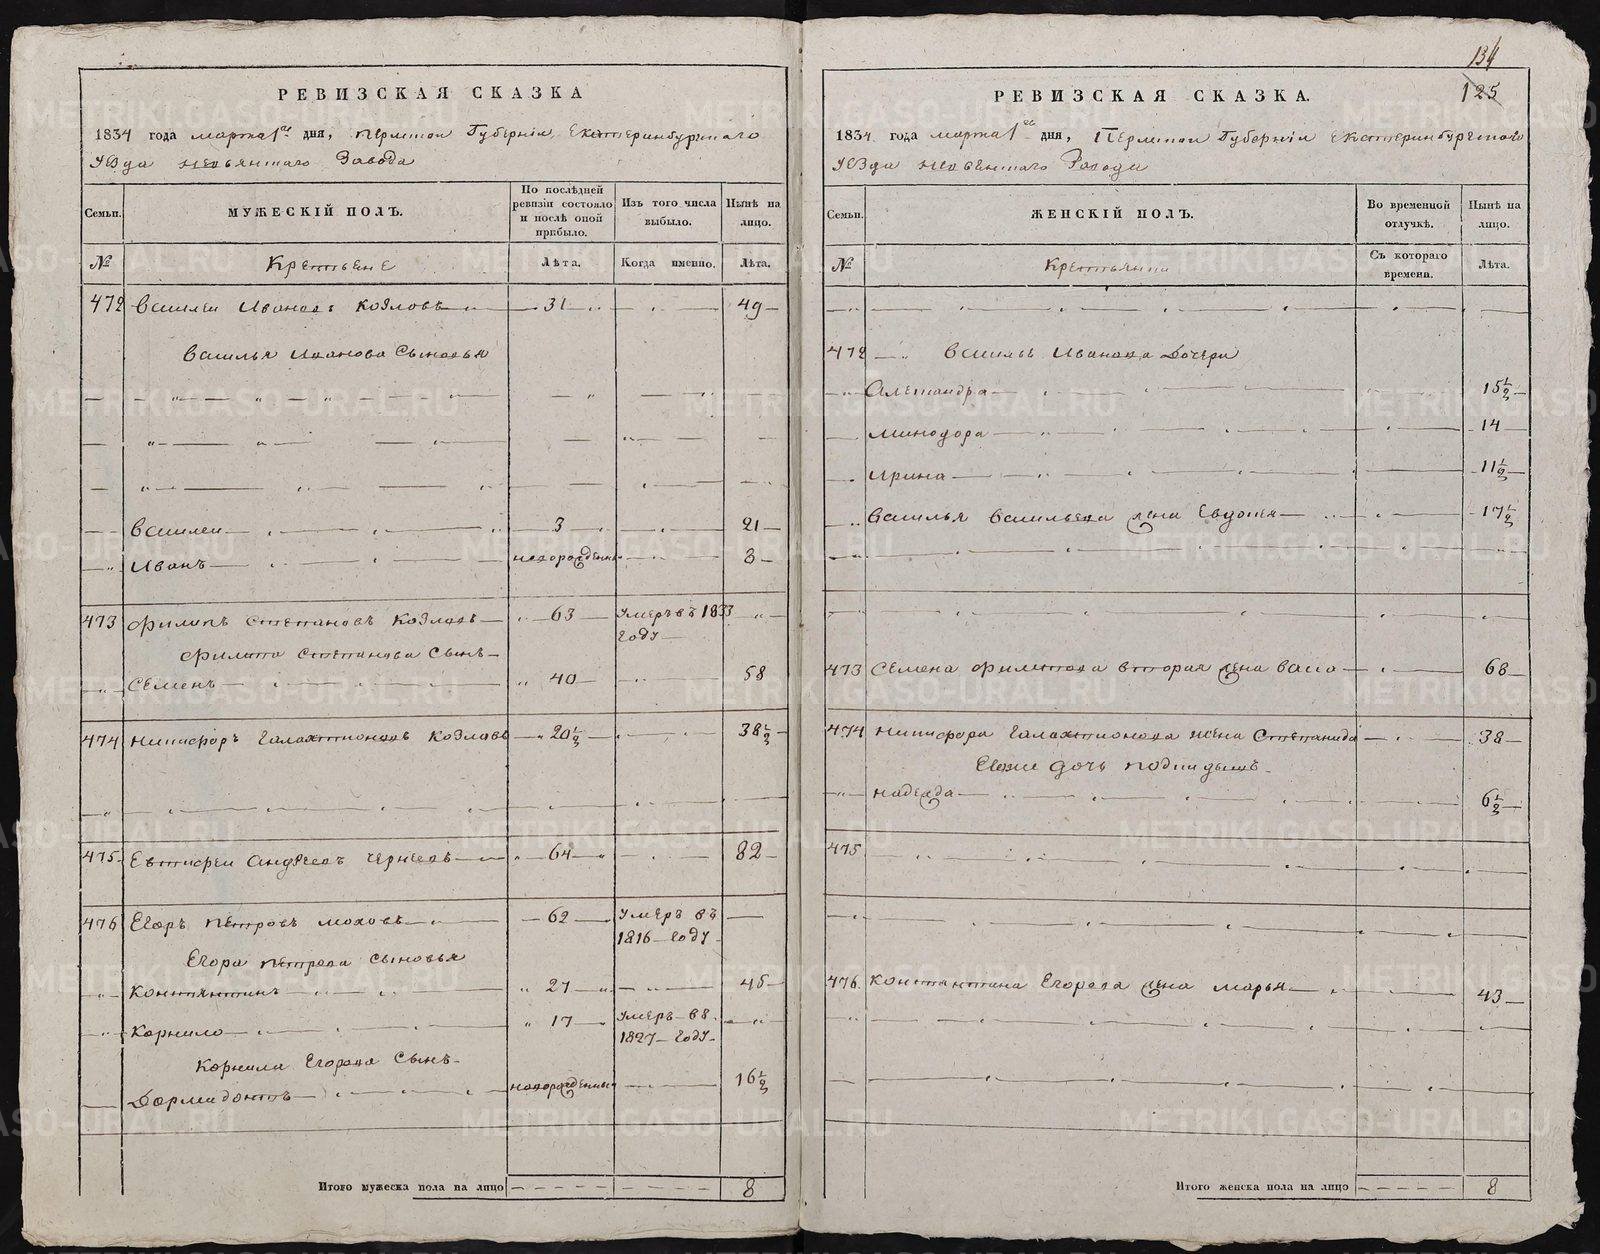 РЕВИЗСКАЯ СКАЗКА
1834 года марта 1го дня, Пермской Губерніи, Екатеринбургскаго
уѣзда невьянскаго Завода
Семьи.
МУЖЕСКІЙ ПОЛЪ.
По послѣдней ревизіи состояло и послѣ оной прибыло.
Изъ того числа выбыло.
Нынѣ на лицо.
№
Крестьяне
Лѣта.
Когда именно.
Лѣта.
472 Василей Ивановъ Козловъ 31 49
Василья Иванова Сыновья
Василей 3 21
Иванъ новорожденны 3
473 Филипъ Степановъ Козловъ 63 умеръ въ 1833 году
Филипа Степанова Сынъ
Семенъ 40 58
474 Никифоръ Галахтионовъ Козловъ 20½ 38½
475 Евтифей Андреевъ 64 82
476 Егоръ Петровъ Моховъ 62 умеръ въ 1816 году
Егора Петрова Сыновья
Констянтинъ 27 45
Корнило 17 умеръ въ 1827 году
Корнила Егорова Сынъ
Дормидонтъ новорожденны 16½
Итого мужеска пола на лицо 8
134
125
РЕВИЗСКАЯ СКАЗКА.
1834 года марта 1го дня, Пермской Губерніи Екатеринбургскаго
уѣзда невьянскаго Завода
Семьи.
ЖЕНСКІЙ ПОЛЪ.
Во временной отлучкѣ.
Нынѣ на лицо.
№
Крестьянки
Съ котораго времени.
Лѣта.
472 Василья Иванова Дочери
Александра 15½
Минодора 14
Ирина 11½
Василья Васильева жена Евдокея 17½
473 Семена Филипова вторая жена Васса 68
474 Никифора Галахтионова жена Степанида 38
дочь
надежда 6½
475
476 Констянтина Егорова жена Марья 43
Итого женска пола на лицо 8
METRIKI.GASO-URAL.RU